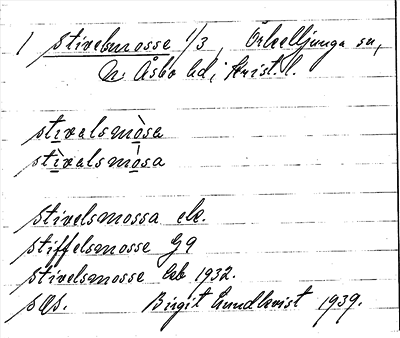 1 Stivelsmosse 1/3, Örkelljunga sn,
N: Åsbo hd, Krist. l.
stìvalsmòsa
stìvalsmòsa
Stivelsmossa ek.
Stiffelsmosse Gg
Stivelsmosse hb 1932.
pgs. Birgit Lundkvist 1939.